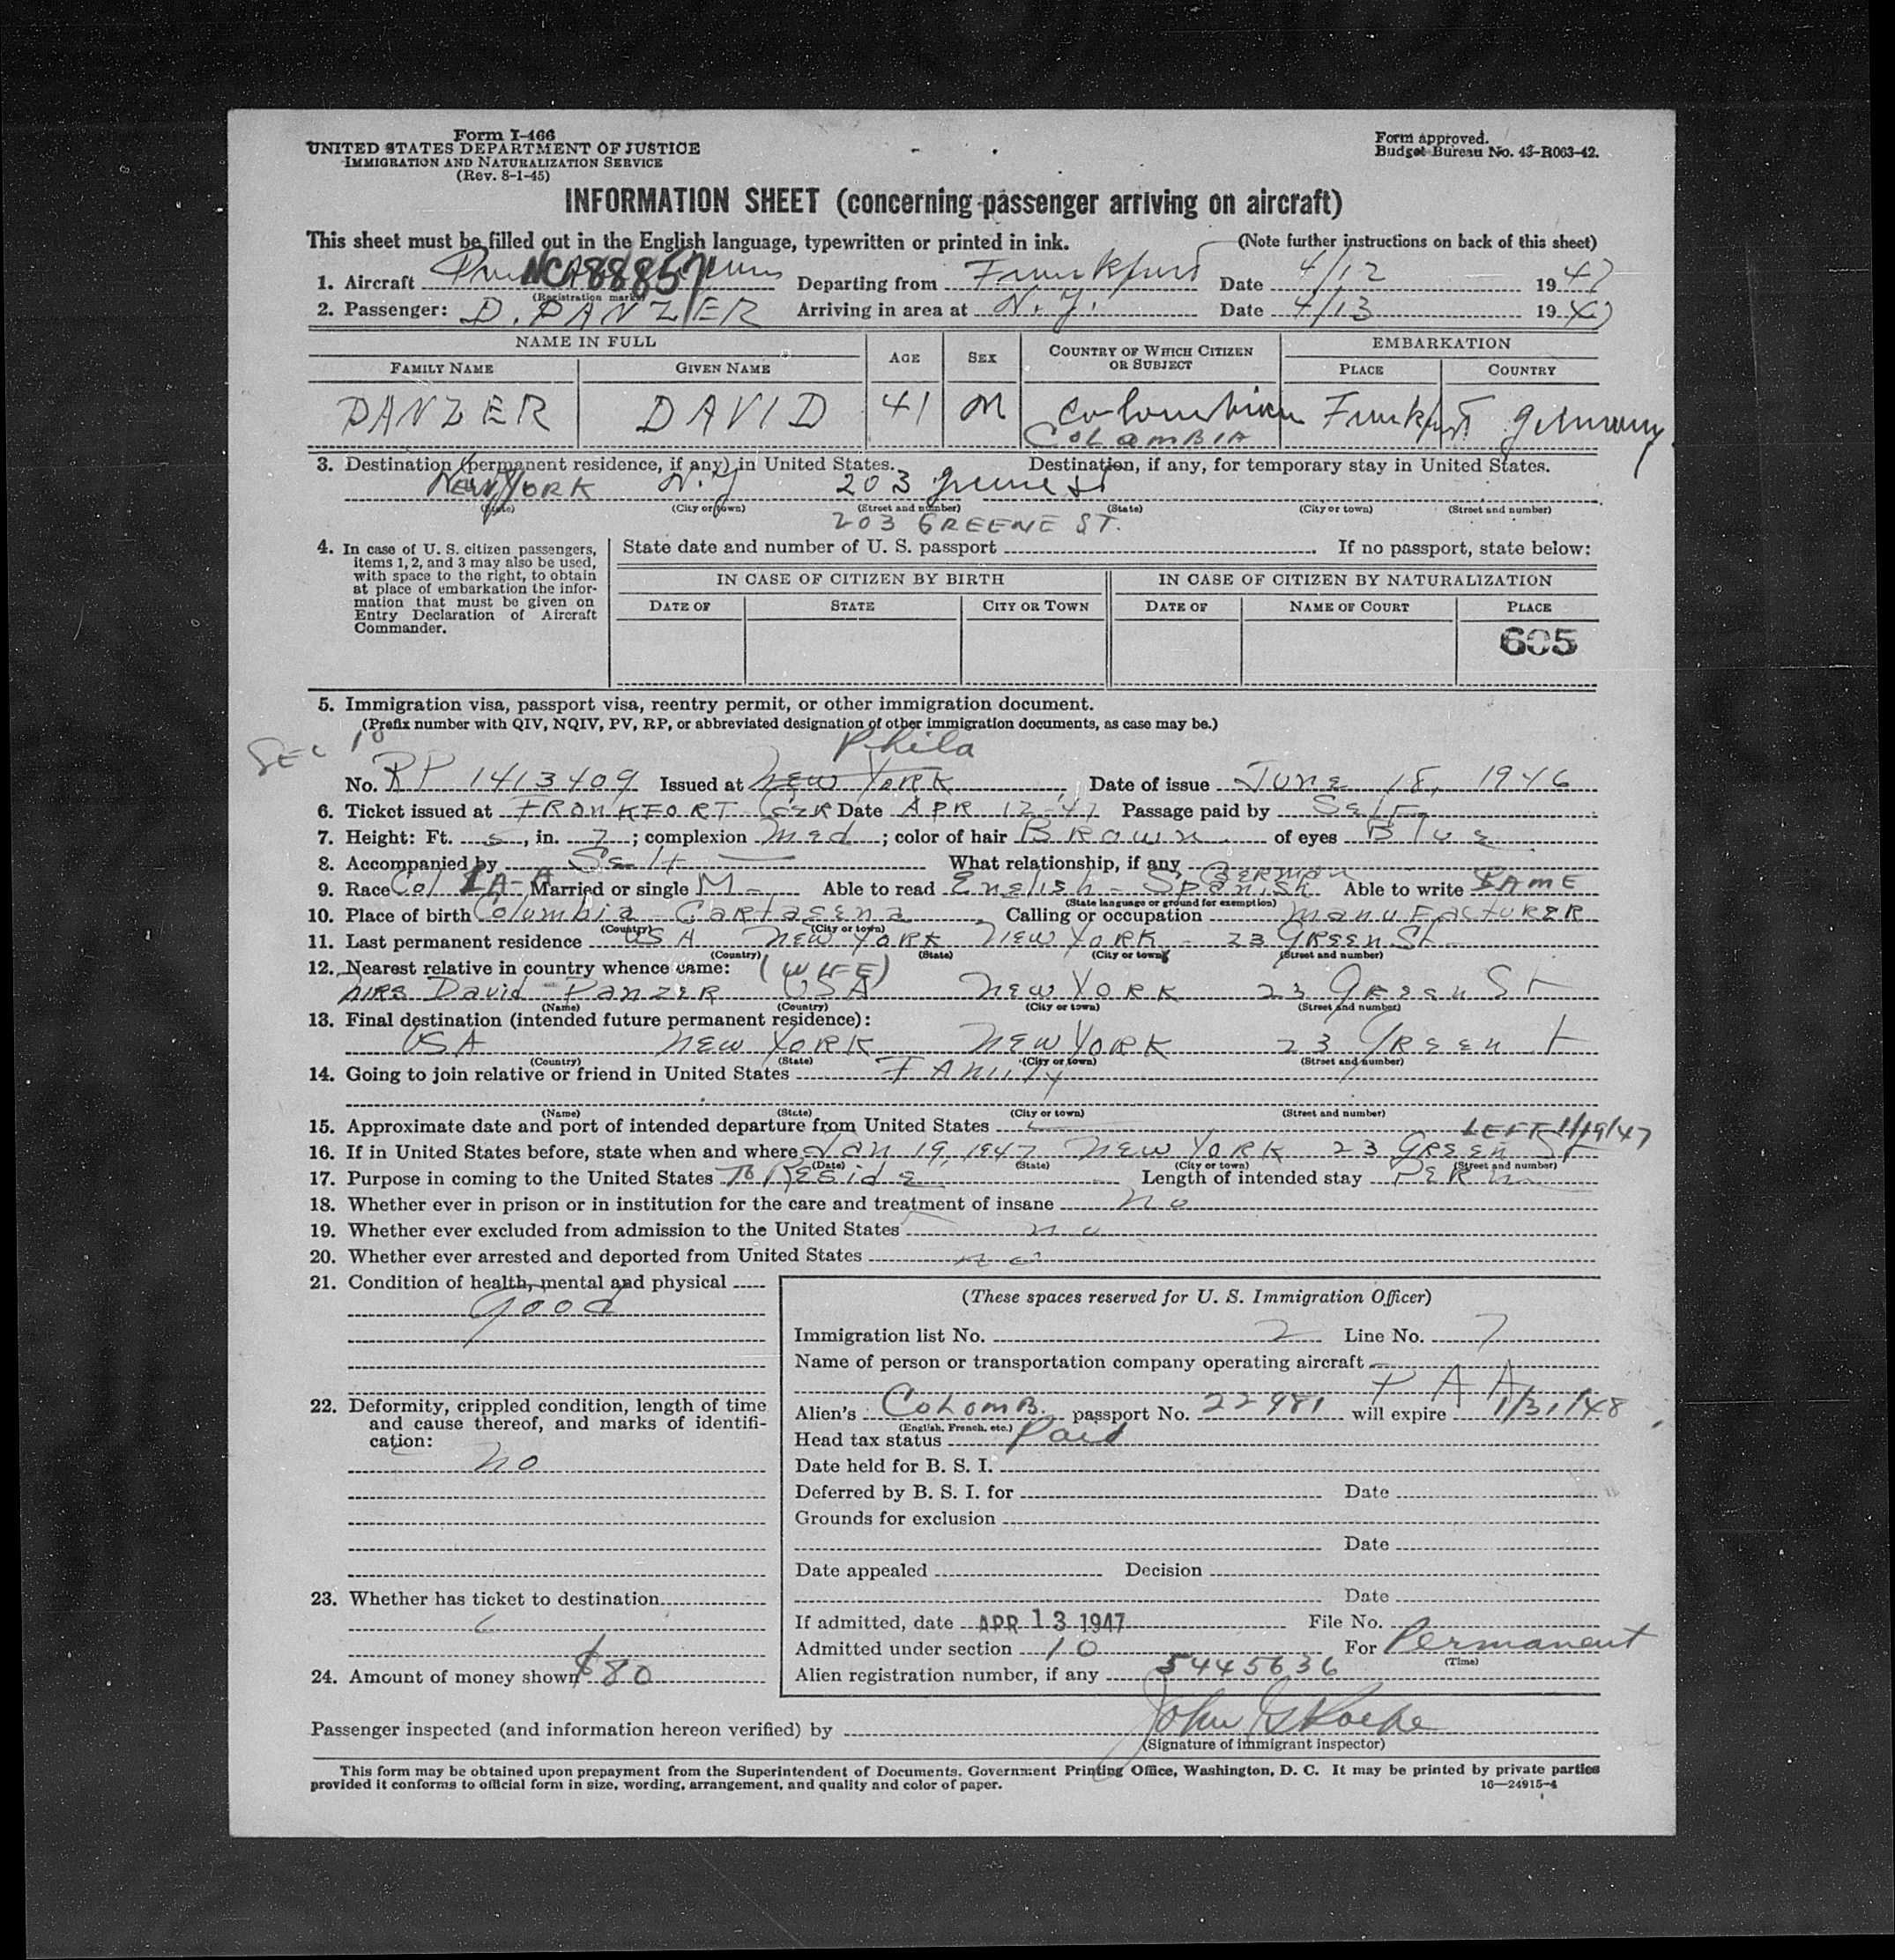 Form I-466
UNITED STATES DEPARTMENT OF JUSTICE
IMMIGRATION AND NATURALIZATION SERVICE
(Rev. 8-1-45)
Form approved.
Budget Bureau No. 43-R063-42.
INFORMATION SHEET (concerning passenger arriving on aircraft)
This sheet must be filled out in the English language, typewritten or printed in ink. (Note further instructions on back of this sheet)
1. Aircraft NC88857 Departing from Frankfurt Date 4/12 1947
(Registration marks)
2. Passenger: D. PANZER Arriving in area at N.Y. Date 4/13 1947
NAME IN FULL AGE SEX COUNTRY OF WHICH CITIZEN OR SUBJECT EMBARKATION
FAMILY NAME GIVEN NAME PLACE COUNTRY
PANZER DAVID 41 M Colombian Frankfurt Germany
COLOMBIA
3. Destination (permanent residence, if any) in United States. Destination, if any, for temporary stay in United States.
NEW YORK N.Y 203 Greene St
(State) (City or town) (Street and number) (State) (City or town) (Street and number)
203 GREENE ST.
4. In case of U. S. citizen passengers, items 1, 2, and 3 may also be used, with space to the right, to obtain at place of embarkation the information that must be given on Entry Declaration of Aircraft Commander.
State date and number of U. S. passport . If no passport, state below:
IN CASE OF CITIZEN BY BIRTH IN CASE OF CITIZEN BY NATURALIZATION
DATE OF STATE CITY OR TOWN DATE OF NAME OF COURT PLACE
605
5. Immigration visa, passport visa, reentry permit, or other immigration document.
(Prefix number with QIV, NQIV, PV, RP, or abbreviated designation of other immigration documents, as case may be.)
SEC 10 Phila
No. RP 1413409 Issued at NEW YORK, Date of issue JUNE 18, 1946
6. Ticket issued at FRONKFORT GER Date APR 12-47 Passage paid by SELF
7. Height: Ft. 5, in. 7; complexion Med; color of hair BROWN of eyes Blue
8. Accompanied by Self What relationship, if any
GERMAN
9. Race Col Married or single M Able to read English - Spanish Able to write SAME
(State language or ground for exemption)
10. Place of birth Columbia - Cartagena, Calling or occupation MANUFACTURER
(Country) (City or town)
11. Last permanent residence USA NEW YORK NEW YORK - 23 GREEN St
(Country) (State) (City or town) (Street and number)
12. Nearest relative in country whence came: (WIFE)
MRS David PANZER USA NEW YORK 23 GREEN St
(Name) (Country) (City or town) (Street and number)
13. Final destination (intended future permanent residence):
USA NEW YORK NEW YORK 23 GREEN st
(Country) (State) (City or town) (Street and number)
14. Going to join relative or friend in United States FAMILY
(Name) (State) (City or town) (Street and number)
15. Approximate date and port of intended departure from United States
LEFT 1/19/47
16. If in United States before, state when and where Jan 19, 1947 NEW YORK 23 GREEN St
(Date) (State) (City or town) (Street and number)
17. Purpose in coming to the United States To Reside Length of intended stay PERM
18. Whether ever in prison or in institution for the care and treatment of insane no
19. Whether ever excluded from admission to the United States no
20. Whether ever arrested and deported from United States no
21. Condition of health, mental and physical
Good
22. Deformity, crippled condition, length of time and cause thereof, and marks of identification:
no
23. Whether has ticket to destination
24. Amount of money shown $80
(These spaces reserved for U. S. Immigration Officer)
Immigration list No. 2 Line No. 7
Name of person or transportation company operating aircraft
PAA
Alien's COLOMB. passport No. 22981 will expire 1/31/48
(English, French, etc.)
Head tax status Paid
Date held for B. S. I.
Deferred by B. S. I. for Date
Grounds for exclusion
Date
Date appealed Decision
Date
If admitted, date APR 13 1947 File No.
Admitted under section 10 For Permanent
(Time)
Alien registration number, if any 5445636
Passenger inspected (and information hereon verified) by John
(Signature of immigrant inspector)
This form may be obtained upon prepayment from the Superintendent of Documents, Government Printing Office, Washington, D. C. It may be printed by private parties
provided it conforms to official form in size, wording, arrangement, and quality and color of paper. 16—24915-4